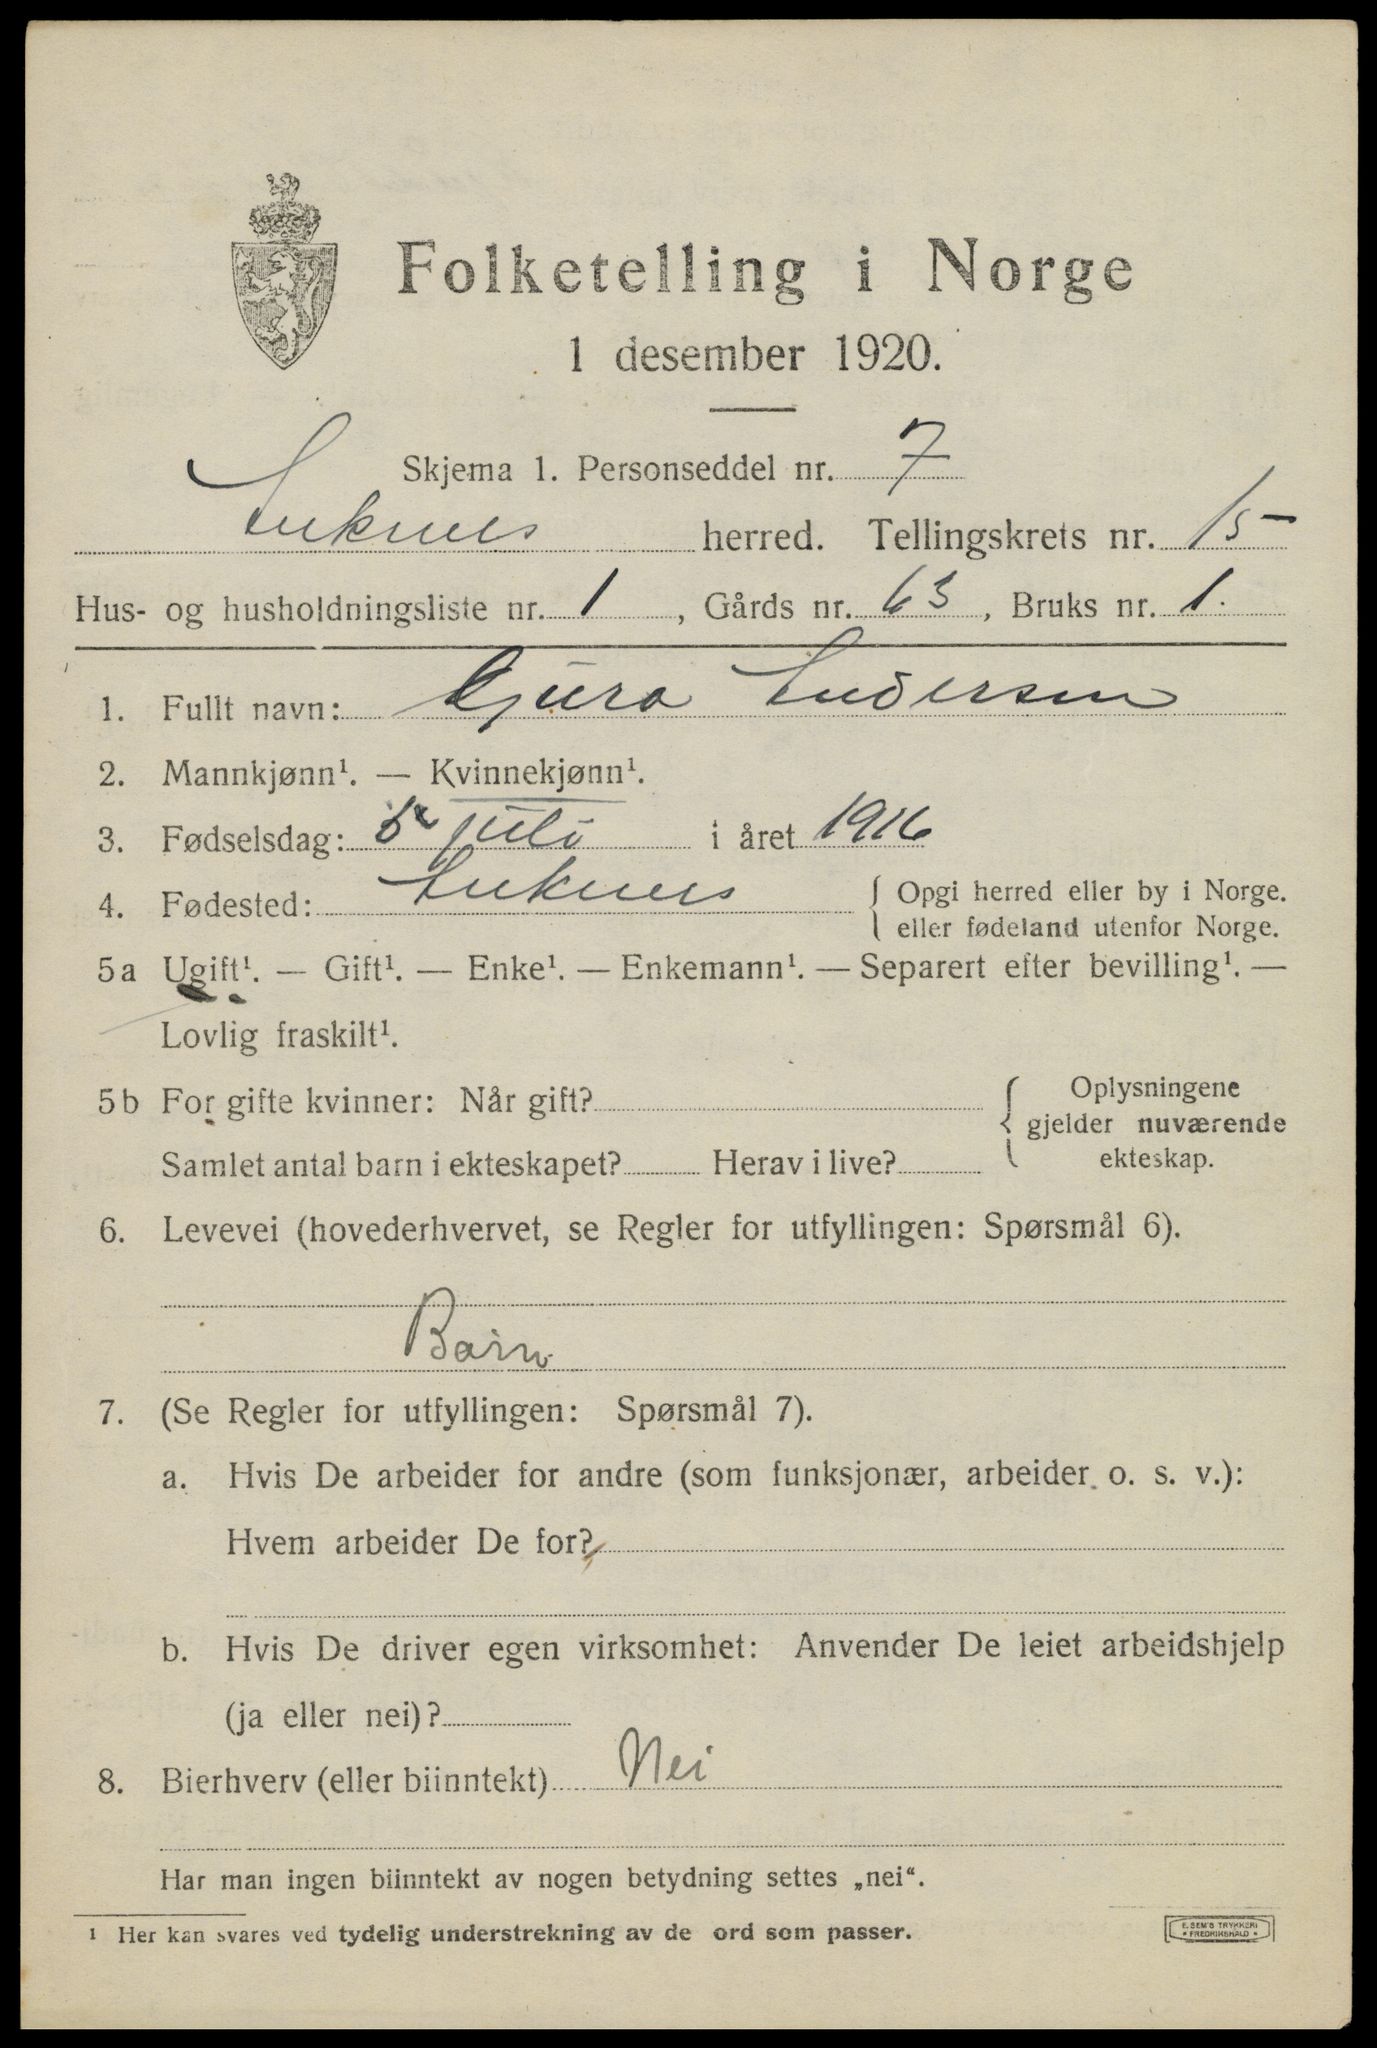 Folketelling i Norge
1 desember 1920.
Skjema 1. Personseddel nr. 7
Suknes herred. Tellingskrets nr. 15
Hus- og husholdningsliste nr. 1, Gårds nr. 63, Bruks nr. 1.
1. Fullt navn: Gjura Andersen
2. Mannkjønn¹. — Kvinnekjønn¹.
3. Fødselsdag: juli i året 1916
4. Fødested: { Opgi herred eller by i Norge.
eller fødeland utenfor Norge.
5a Ugift¹. — Gift¹. — Enke¹. — Enkemann¹. — Separert efter bevilling¹. —
Lovlig fraskilt¹.
5b For gifte kvinner: Når gift? { Oplysningene
gjelder nuværende
Samlet antal barn i ekteskapet? Herav i live? ekteskap.
6. Levevei (hovederhvervet, se Regler for utfyllingen: Spørsmål 6).
Barn
7. (Se Regler for utfyllingen: Spørsmål 7).
a. Hvis De arbeider for andre (som funksjonær, arbeider o. s. v.):
Hvem arbeider De for?
b. Hvis De driver egen virksomhet: Anvender De leiet arbeidshjelp
(ja eller nei)?
8. Bierhverv (eller biinntekt) Nei
Har man ingen biinntekt av nogen betydning settes „nei“.
¹ Her kan svares ved tydelig understrekning av de ord som passer.
E. SEM'S TRYKKERI
* FREDRIKSHALD *